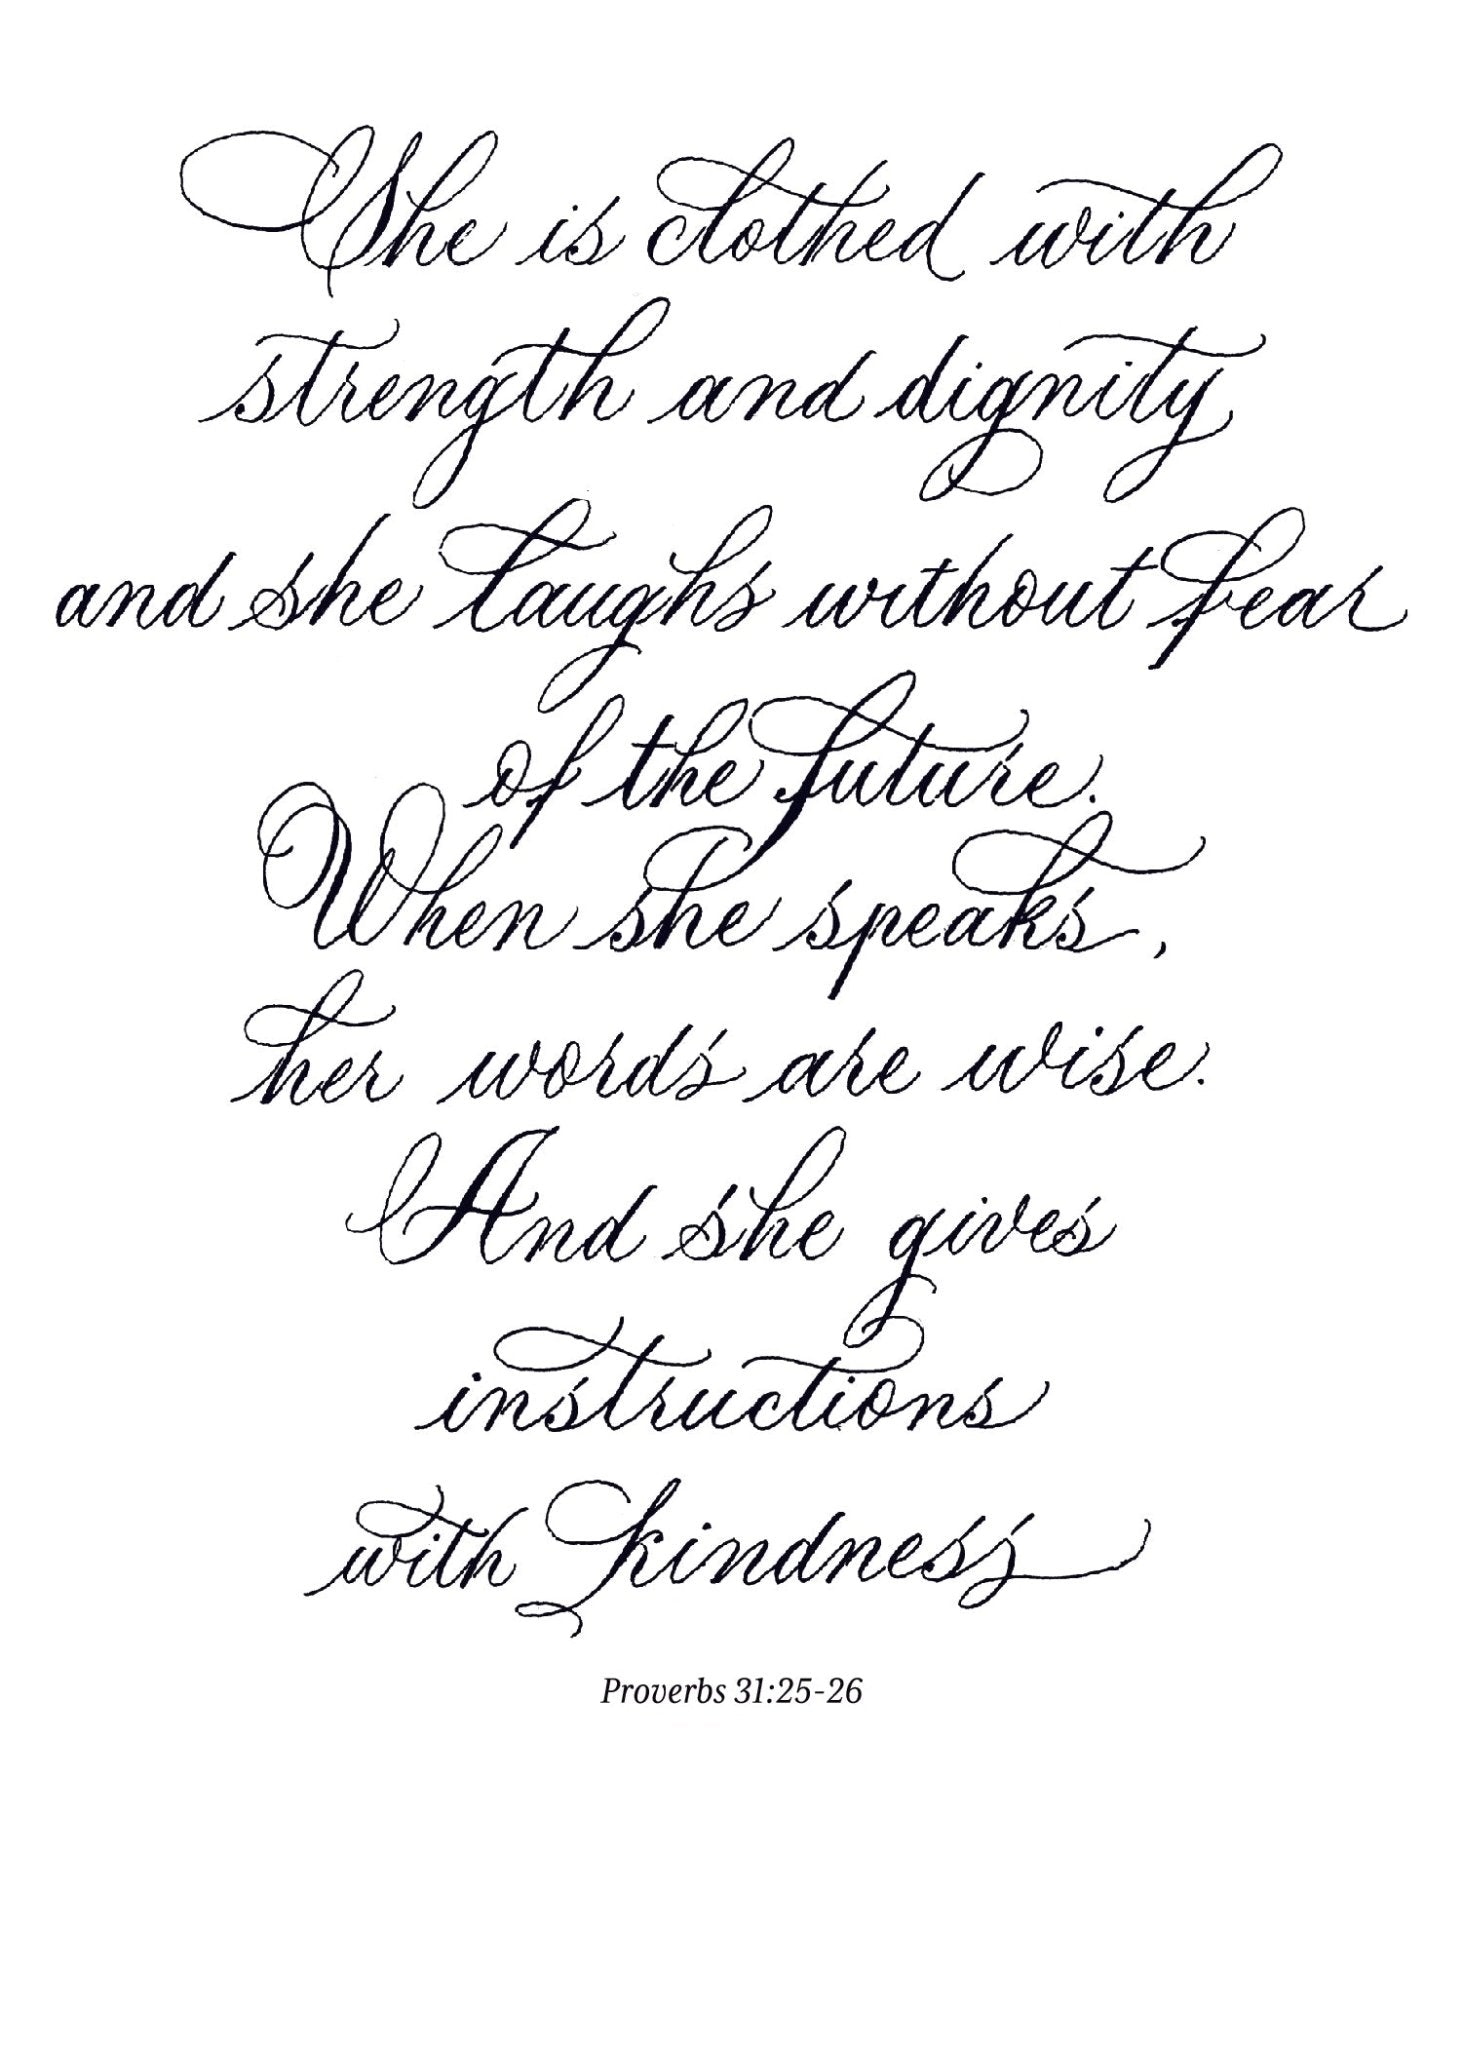 She is clothed with
strength and dignity
and she laughs without fear
of the future.
When she speaks,
her words are wise.
And she gives
instructions
with kindness
Proverbs 31:25-26